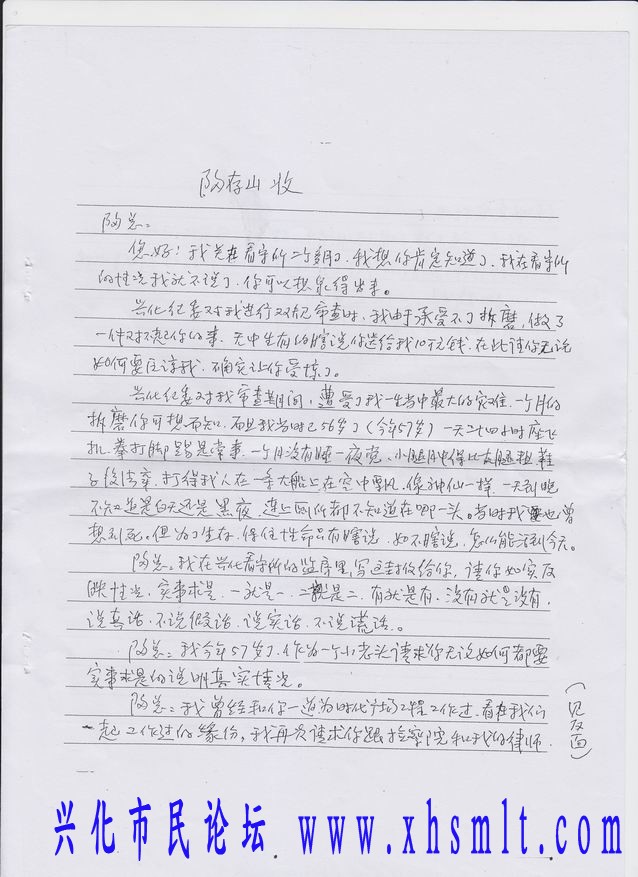 陶存山 收
陶总:
您好!我关在看守所二个多月了,我想你肯定知道了,我在看守所
的情况我就不说了,你可以想象得出来。
兴化纪委对我进行双规审查时,我由于承受不了折磨,做了
一件对不起你的事,无中生有的瞎说你送给我10万元钱,在此请你无论
如何要原谅我,确实让你受惊了。
兴化纪委对我审查期间,遭受了我一生当中最大的灾难,一个月的
折磨你可想而知,而且我当时已56岁了(今年57岁)一天二十四小时座飞
机,拳打脚踢是常事,一个月没有睡一夜觉,小腿肿得比大腿粗,鞋
子没法穿,打得我人在一条大船上在空中飘,像神仙一样,一天到晚
不知道是白天还是黑夜,连上厕所都不知道在哪一头。当时我也曾
想到死。但为了生存,保住性命只有瞎说,如不瞎说,怎么能活到今天。
陶总:我在兴化看守所的监房里,写这封信给你,请你如实反
映情况,实事求是,一就是一,二就是二,有就是有,没有就是没有,
说真话,不说假话,说实话,不说谎话。
陶总:我今年57岁了,作为一个小老头请求你无论如何都要
实事求是的说明真实情况。
陶总:我曾经和你一道为时代广场工程工作过,看在我们
一起工作过的缘份,我再次请求你跟检察院和我的律师
(见反面)
兴化市民论坛 www.xhsmlt.com